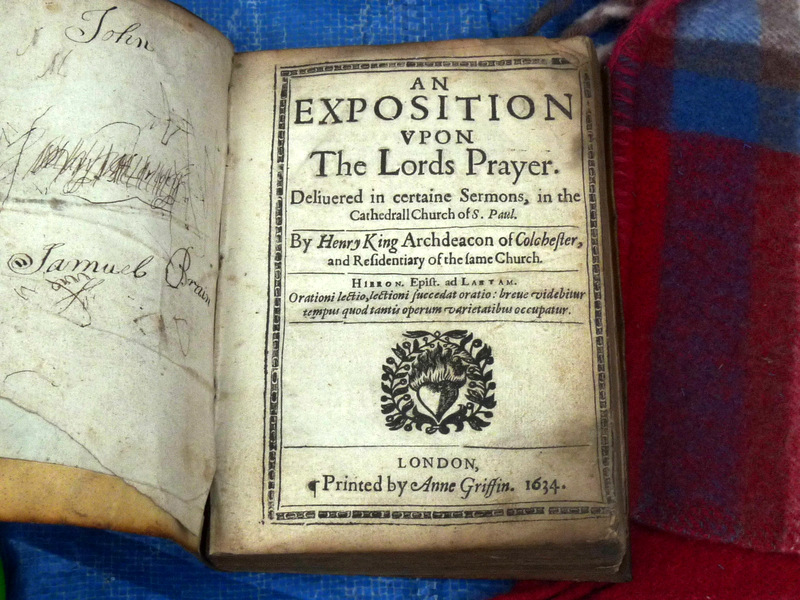 John
Samuel Brain
AN
EXPOSITION
VPON
The Lords Prayer.
Deliuered in certaine Sermons, in the
Cathedrall Church of S. Paul.
By Henry King Archdeacon of Colcheſter,
and Reſidentiary of the ſame Church.
HIERON. Epiſt. ad LAETAM.
Orationi lectio, lectioni ſuccedat oratio: breue videbitur
tempus quod tantis operum varietatibus occupatur.
LONDON,
Printed by Anne Griffin. 1634.